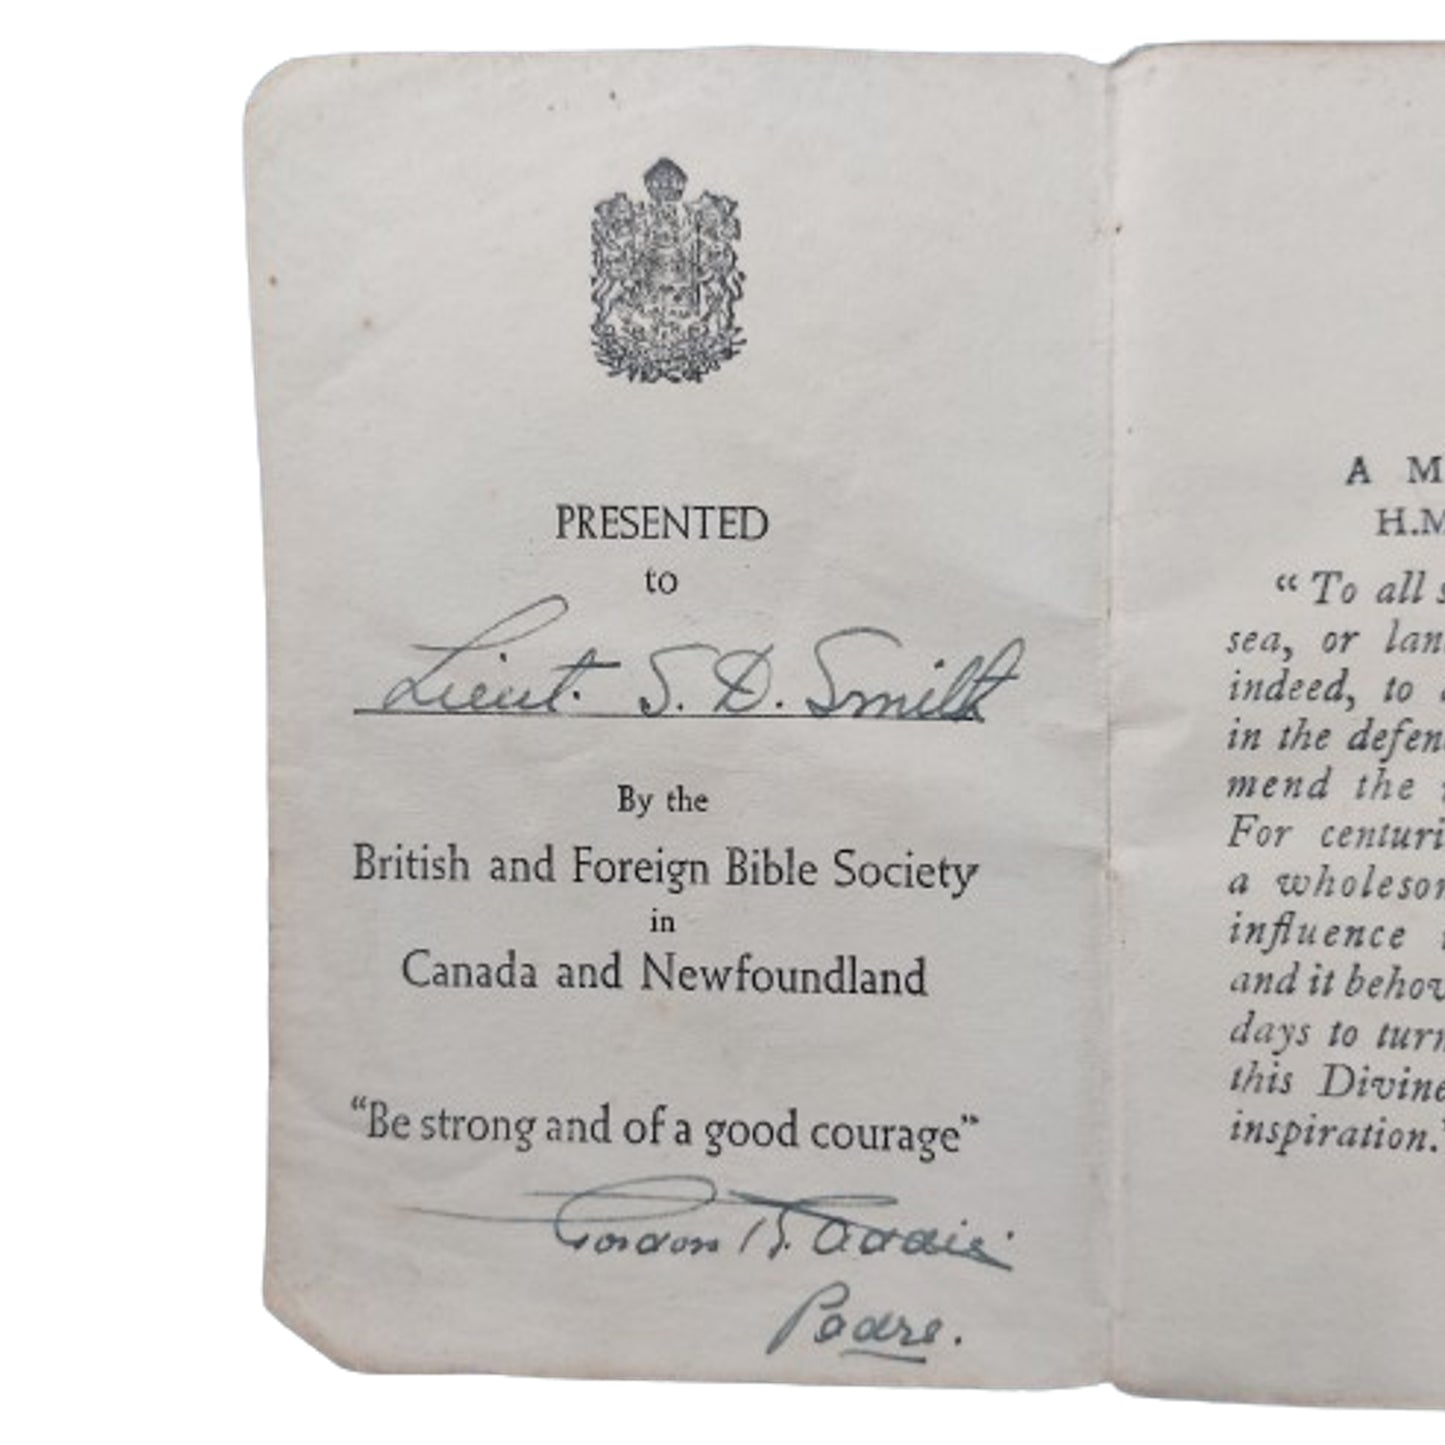 PRESENTED
to
Lieut. S. D. Smith
By the
British and Foreign Bible Society
in
Canada and Newfoundland
"Be strong and of a good courage"
Gordon
Padre.
A M
H.M
“ To all s
sea, or lan
indeed, to
in the defen
mend the
For centuri
a wholesom
influence
and it behov
days to turn
this Divine
inspiration.”